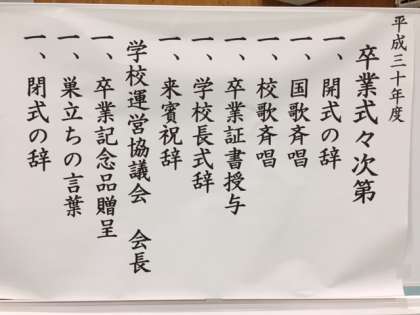 平成三十年度
卒業式々次第
一、開式の辞
一、国歌斉唱
一、校歌斉唱
一、卒業証書授与
一、学校長式辞
一、来賓祝辞
学校運営協議会　会長
一、卒業記念品贈呈
一、巣立ちの言葉
一、閉式の辞